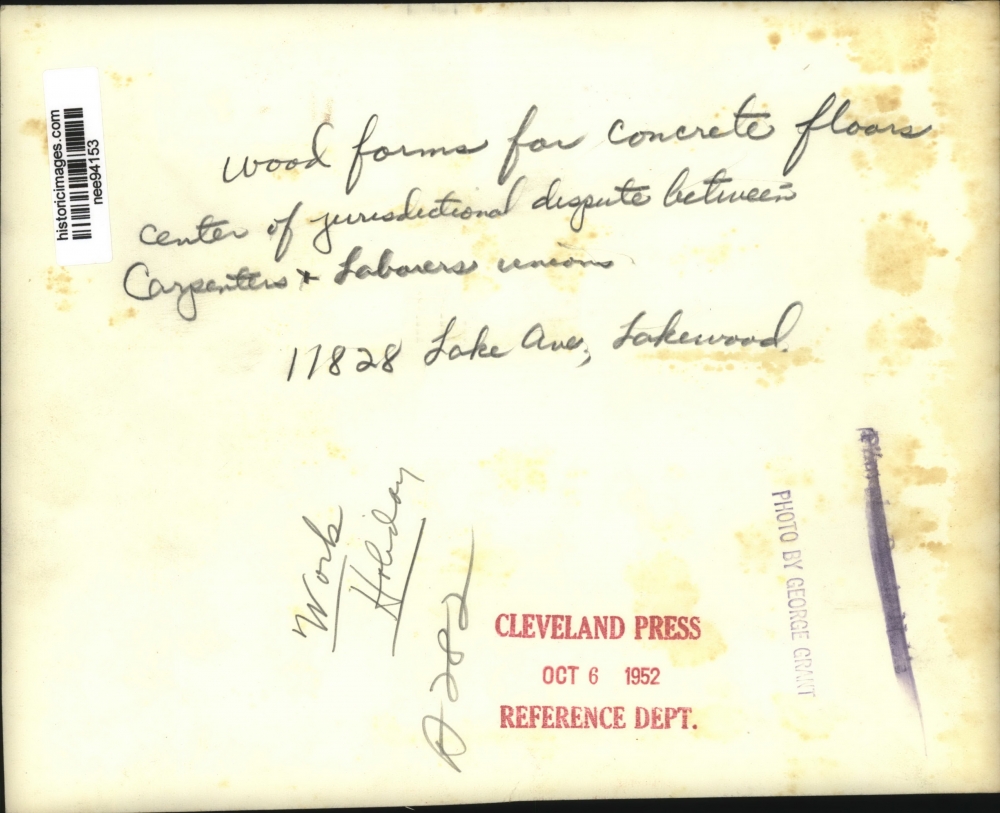 historicimages.com
nee94153
wood forms for concrete floors
center of jurisdictional dispute between
Carpenters & Laborers unions
11828 Lake Ave, Lakewood.
Work
Holiday
D282
CLEVELAND PRESS
OCT 6 1952
REFERENCE DEPT.
PHOTO BY GEORGE GRANT